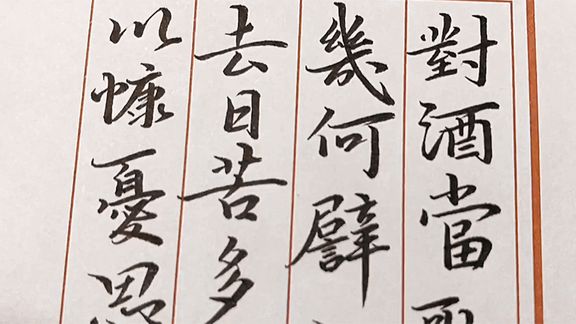 對酒當
幾何譬
去日苦多
以慷憂思